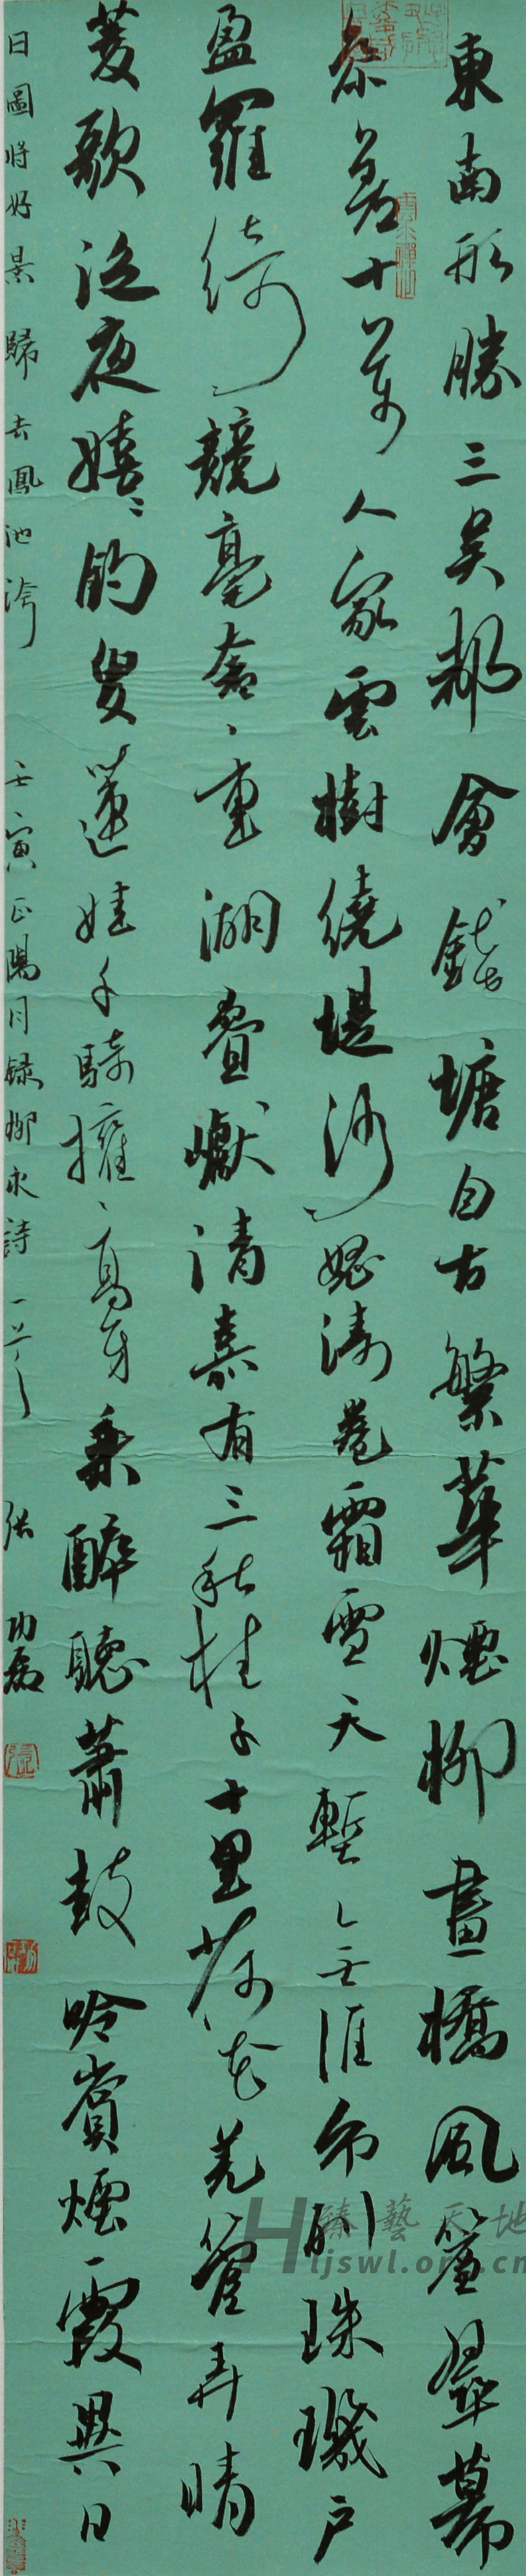 東南形勝三吳都會錢塘自古繁華煙柳畫橋風簾翠幕
參差十萬人家雲樹繞堤沙怒濤卷霜雪天塹無涯市列珠璣戶
盈羅綺競豪奢、重湖疊巘清嘉有三秋桂子十里荷花羌管弄晴
菱歌泛夜嬉、釣叟蓮娃千騎擁、高牙乘醉聽蕭鼓吟賞煙霞異日
日圖將好景歸去鳳池誇
壬寅正陽月錄柳永詩一首
張功勛
臻藝天地
Hljswl.org.cn